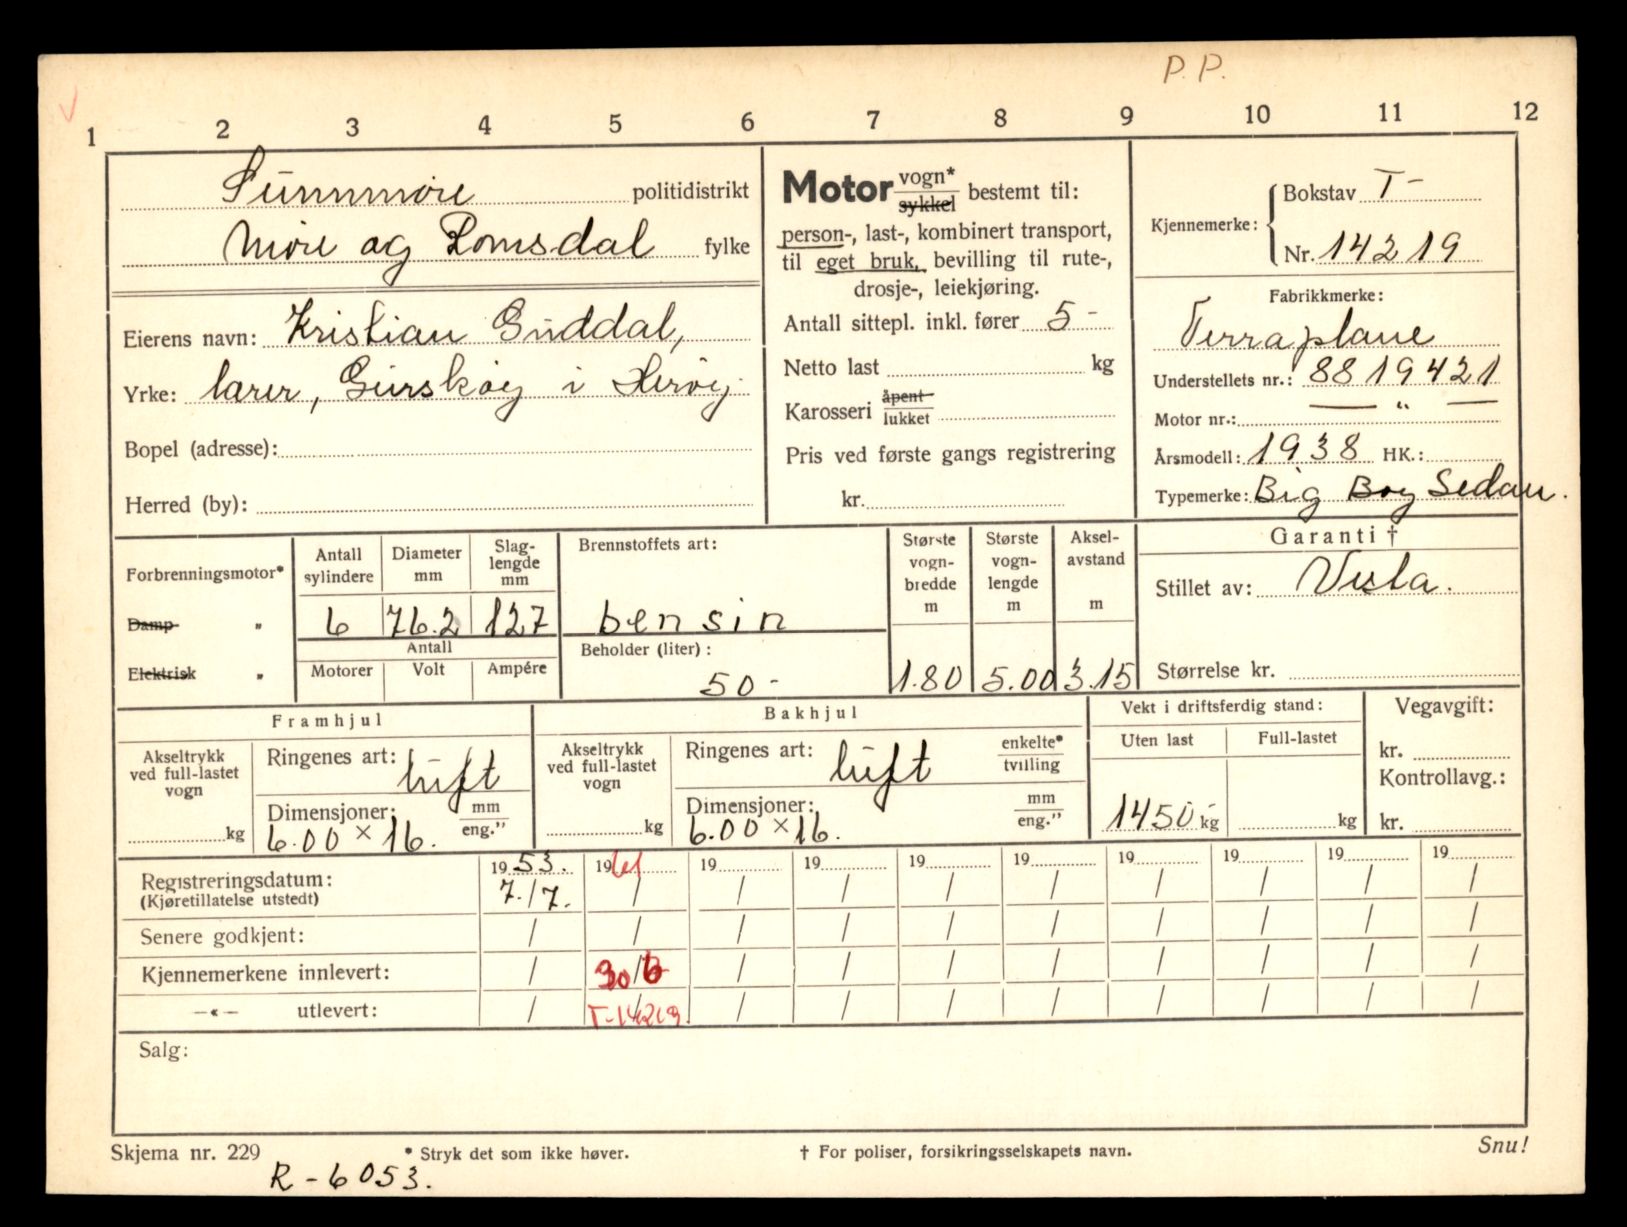 P.P.
1 2 3 4 5 6 7 8 9 10 11 12
Sunnmøre politidistrikt
Møre og Romsdal fylke
Eierens navn: Kristian Guddal,
Yrke: lærer, Gurskøy i Herøy.
Bopel (adresse):
Herred (by):
Motor vogn* sykkel bestemt til:
person-, last-, kombinert transport,
til eget bruk, bevilling til rute-,
drosje-, leiekjøring.
Antall sittepl. inkl. fører 5 -
Netto last kg
Karosseri åpent lukket
Pris ved første gangs registrering
kr.
Kjennemerke: Bokstav T-
Nr. 14219
Fabrikkmerke:
Terraplane
Understellets nr.: 8819421
Motor nr.: — " —
Årsmodell: 1938 HK.:
Typemerke: Big Boy Sedan.
Forbrenningsmotor*
Damp "
Elektrisk "
Antall sylindere
Diameter mm
Slag-
lengde
mm
6 76.2 127
Antall
Motorer Volt Ampére
Brennstoffets art:
bensin
Beholder (liter):
50 -
Største
vogn-
bredde
m
1.80
Største
vogn-
lengde
m
5.00
Aksel-
avstand
m
3.15
Garanti †
Stillet av: Vesta.
Størrelse kr.
Framhjul
Akseltrykk
ved full-lastet
vogn
kg
Ringenes art: luft
Dimensjoner: mm
6.00 × 16. eng."
Bakhjul
Akseltrykk
ved full-lastet
vogn
kg
Ringenes art: luft enkelte* tvilling
Dimensjoner: mm
6.00 × 16. eng."
Vekt i driftsferdig stand:
Uten last Full-lastet
1450 - kg kg
Vegavgift:
kr.
Kontrollavg.:
kr.
19 53. 19 61 19 19 19 19 19 19 19 19
Registreringsdatum: 7./7. / / / / / / / / /
(Kjøretillatelse utstedt)
Senere godkjent: / / / / / / / / / /
Kjennemerkene innlevert: / 30/6 / / / / / / / /
—«— utlevert: / T-14219. / / / / / / / /
Salg:
Skjema nr. 229 * Stryk det som ikke høver. † For poliser, forsikringsselskapets navn. Snu!
R - 6053.